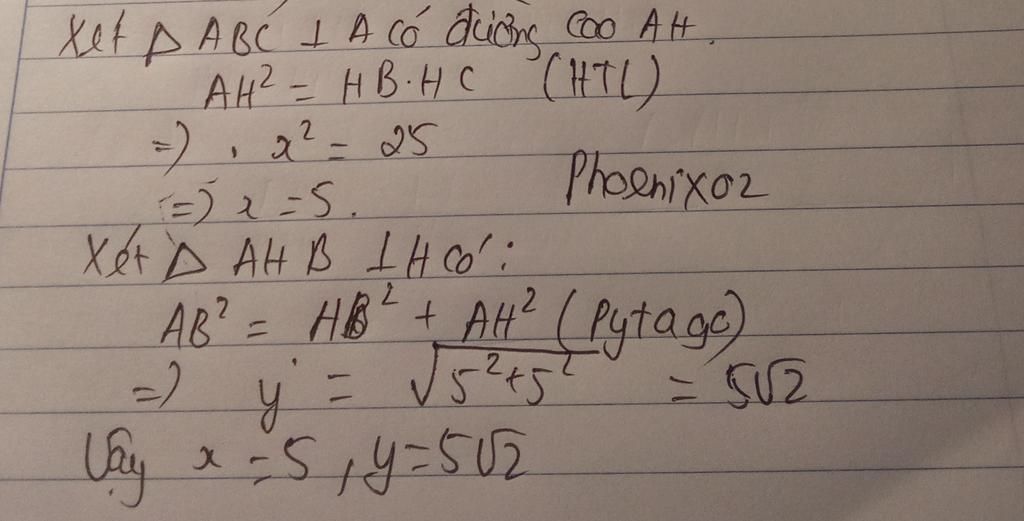 Xét Δ ABC ⊥ A có đường cao AH.
AH² = HB.HC (HTL)
=) . x² = 25
=) x = 5.
Phoenix02
Xét Δ AHB ⊥ H có:
AB² = HB² + AH² (Pytago)
=) y = √5²+5² = 5√2
Vậy x = 5, y = 5√2